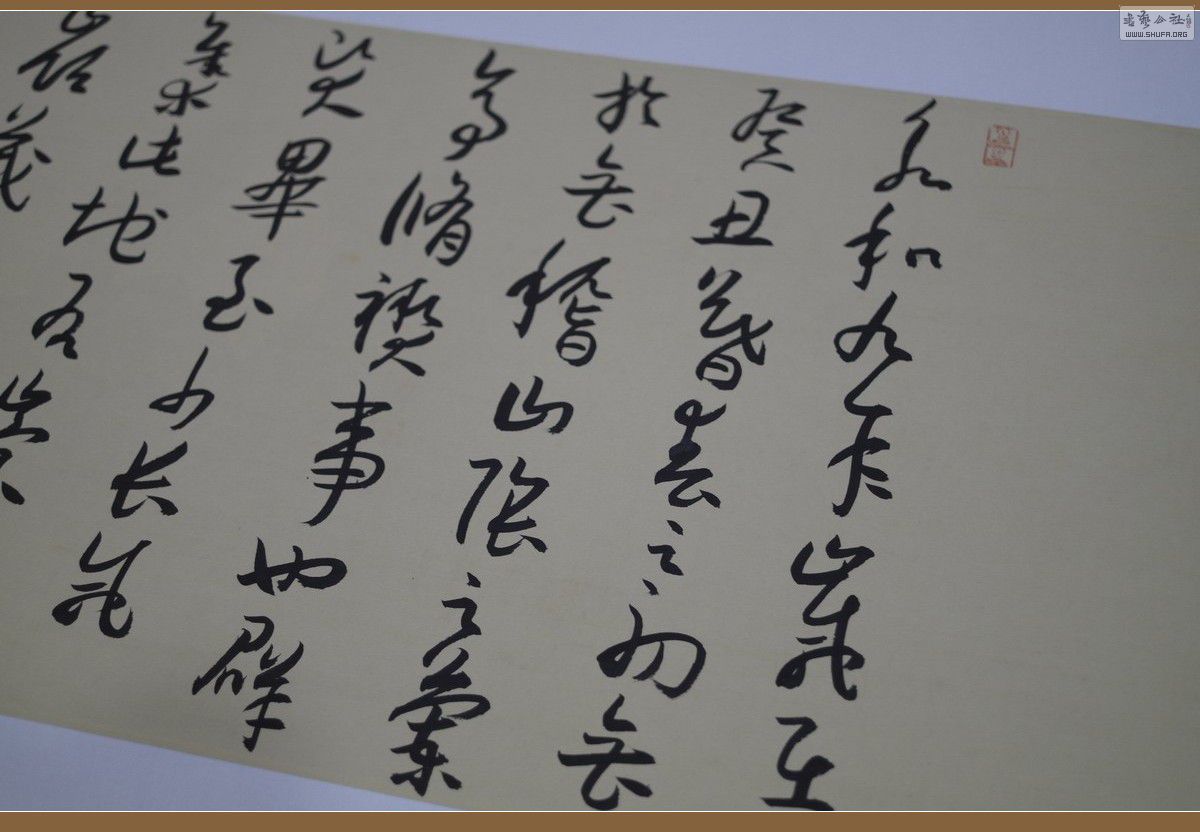 永和九年歲在
癸丑暮春之初會
於會稽山陰之蘭
亭脩禊事也群
賢畢至少長咸
集此地有崇
嶺茂
書藝公社
WWW.SHUFA.ORG